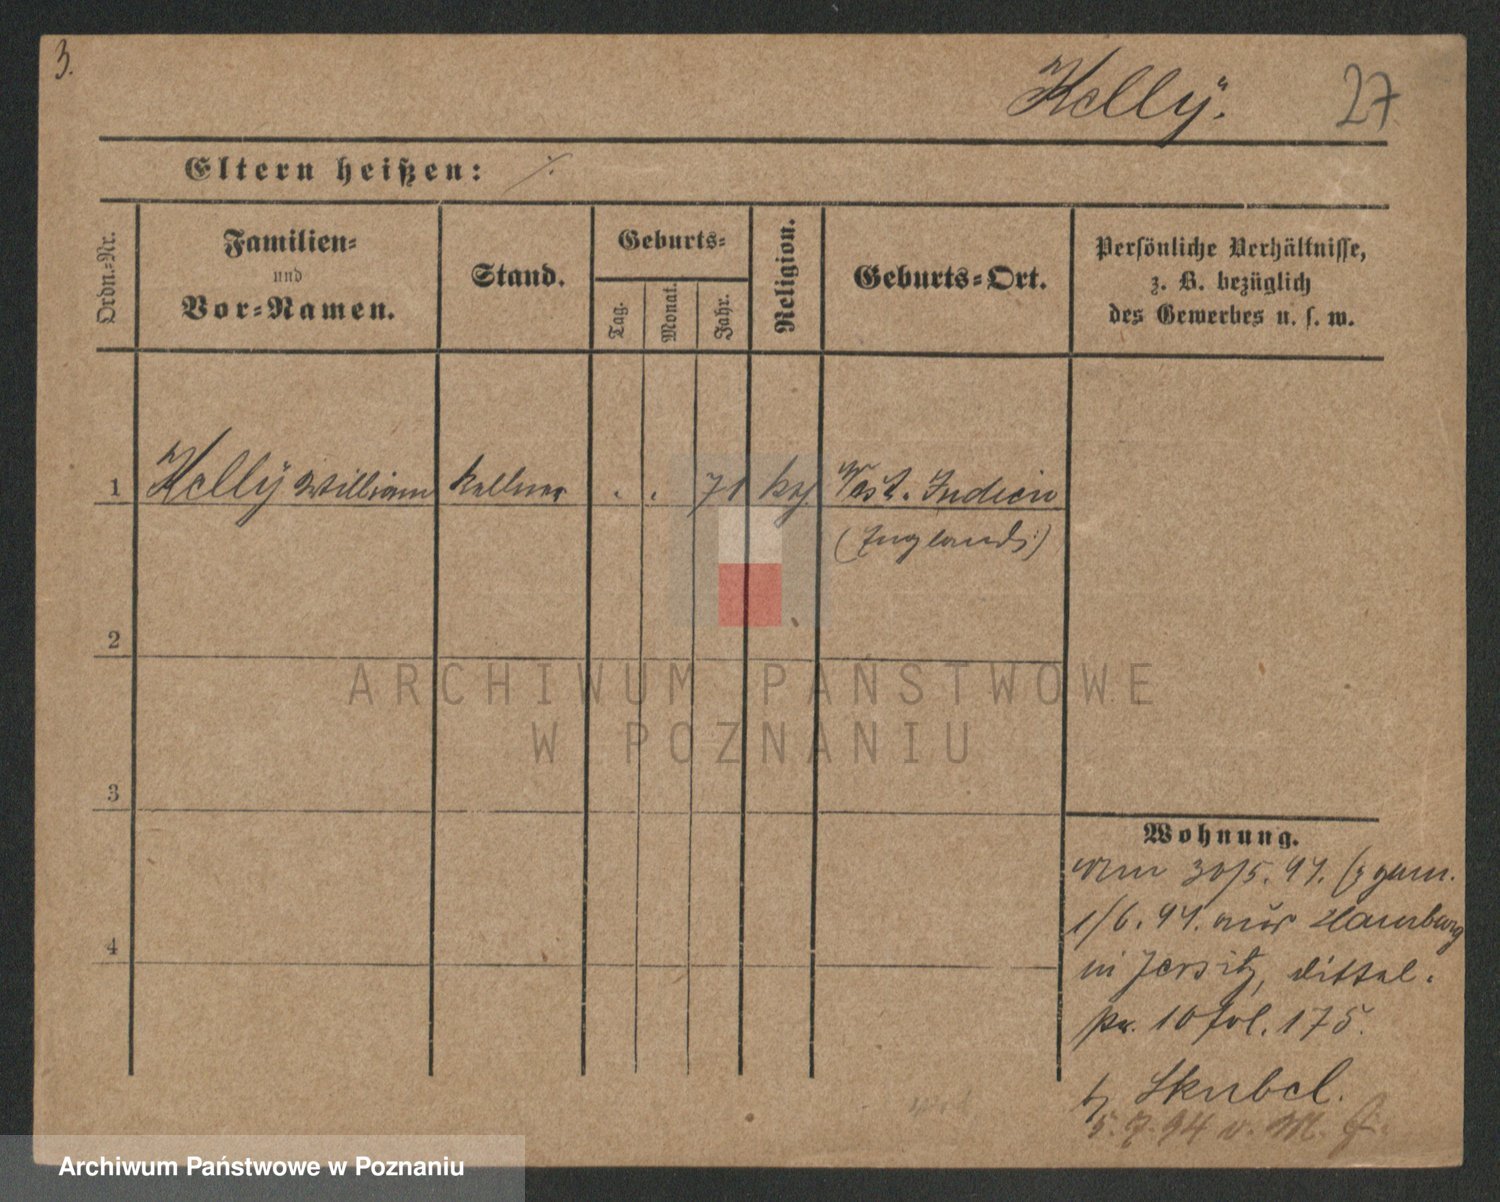 3.
Kelly.
27
Eltern heißen: ⁒
Ordn.-Nr.
Familien-
und
Vor-Namen.
Stand.
Geburts-
Tag.
Monat.
Jahr.
Religion.
Geburts-Ort.
Persönliche Verhältnisse,
z. B. bezüglich
des Gewerbes u. s. w.
1 Kelly William Kellner . . 71 West. Indien
(Englands)
2
ARCHIWUM PAŃSTWOWE
W POZNANIU
3
Wohnung.
30/5. 94.
1/6. 94. aus Hamburg
4
in Jersitz,
10 fol. 175.
b/ Skubel.
5.7.94 v. M.
Archiwum Państwowe w Poznaniu